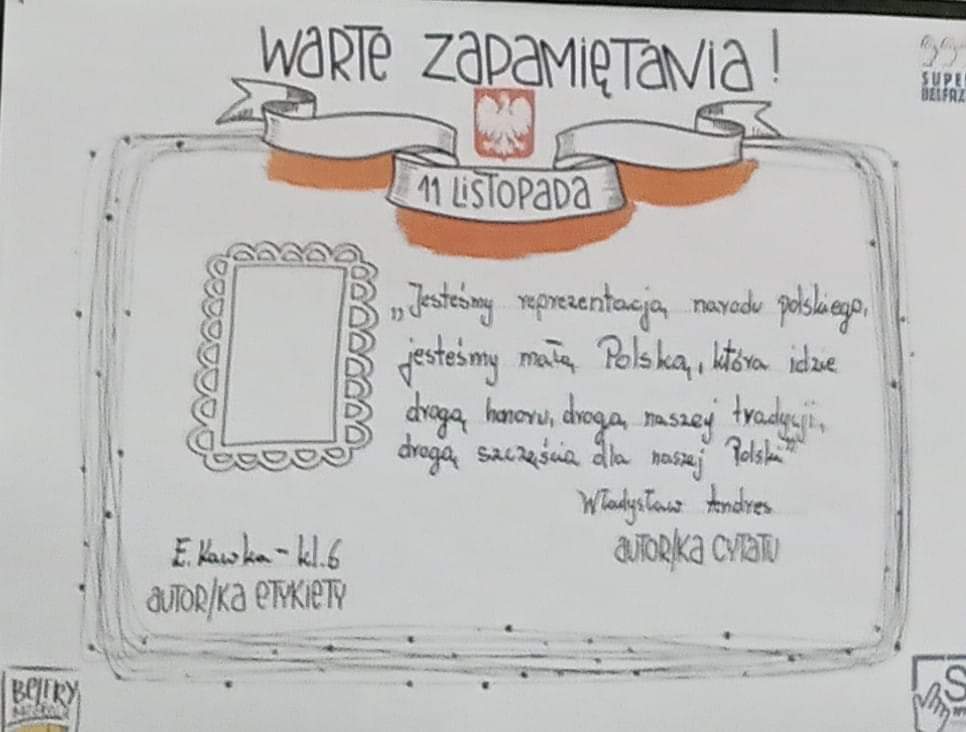 WARTE ZAPAMIĘTANIA!
SUPE
BELFRZ
11 LISTOPADA
„Jesteśmy reprezentacją narodu polskiego,
jesteśmy małą Polską, która idzie
drogą honoru, drogą naszej tradycji,
drogą szczęścia dla naszej Polski"
Władysław Andres
AUTOR/KA CYTATU
E. Kawka - kl. 6
AUTOR/KA ETYKIETY
BELFRY
S